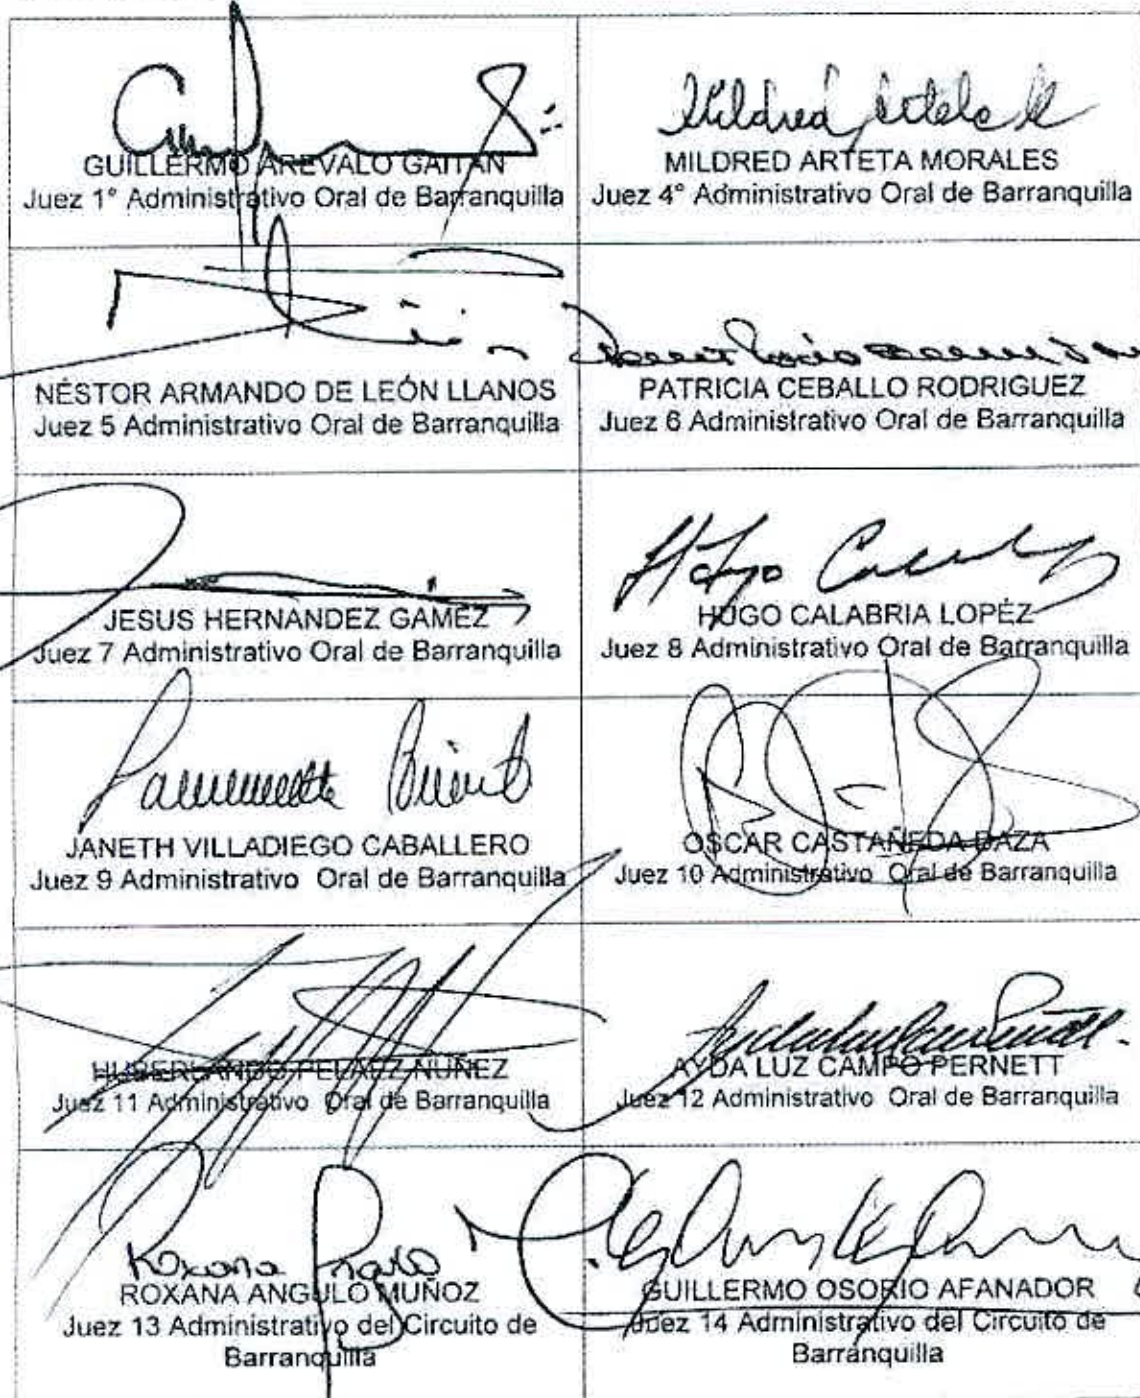 Mildred Arteta M
GUILLERMO AREVALO GAITAN
Juez 1° Administrativo Oral de Barranquilla
MILDRED ARTETA MORALES
Juez 4° Administrativo Oral de Barranquilla
NÉSTOR ARMANDO DE LEÓN LLANOS
Juez 5 Administrativo Oral de Barranquilla
PATRICIA CEBALLO RODRIGUEZ
Juez 6 Administrativo Oral de Barranquilla
JESUS HERNANDEZ GAMEZ
Juez 7 Administrativo Oral de Barranquilla
Hugo
HUGO CALABRIA LOPÉZ
Juez 8 Administrativo Oral de Barranquilla
JANETH VILLADIEGO CABALLERO
Juez 9 Administrativo Oral de Barranquilla
OSCAR CASTAÑEDA DAZA
Juez 10 Administrativo Oral de Barranquilla
HUBERLANDO PELAEZ NUÑEZ
Juez 11 Administrativo Oral de Barranquilla
AYDA LUZ CAMPO PERNETT
Juez 12 Administrativo Oral de Barranquilla
Roxana Angulo
ROXANA ANGULO MUÑOZ
Juez 13 Administrativo del Circuito de
Barranquilla
GUILLERMO OSORIO AFANADOR
Juez 14 Administrativo del Circuito de
Barranquilla